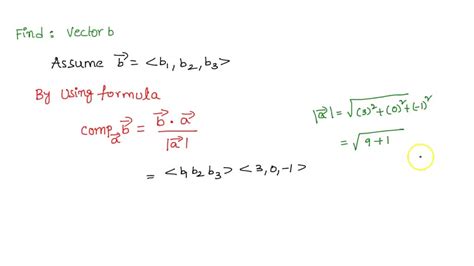 Find: Vector b
Assume b⃗ = <b₁, b₂, b₃>
By using formula
comp_a⃗ b⃗ = b⃗ · a⃗ / |a⃗|
= <b₁ b₂ b₃> <3, 0, -1>
|a⃗| = √(3)² + (0)² + (-1)²
= √9 + 1